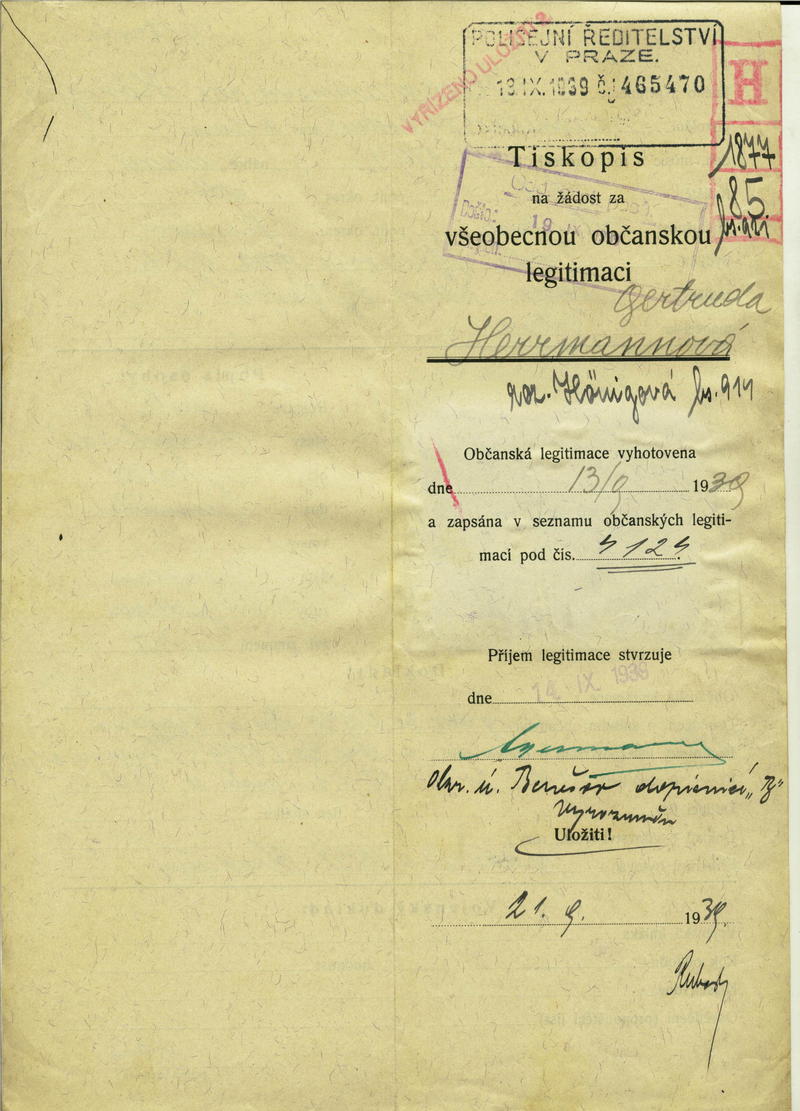 VYŘÍZENO ULOŽIT
POLICEJNÍ ŘEDITELSTVÍ
V PRAZE.
13.IX.1939 č. 465470
H
Tiskopis
1877
na žádost za
85
Došlo: 19 IX
všeobecnou občanskou
legitimaci
Gertruda
Herrmannová
roz. Hönigová 914
Občanská legitimace vyhotovena
dne 13/9 1939
a zapsána v seznamu občanských legiti-
mací pod čís.
Příjem legitimace stvrzuje
dne 14. IX. 1939
Okr. ú. Benešov dopisnicí „B"
Vyrozuměn
Uložiti!
21. 9. 1939.